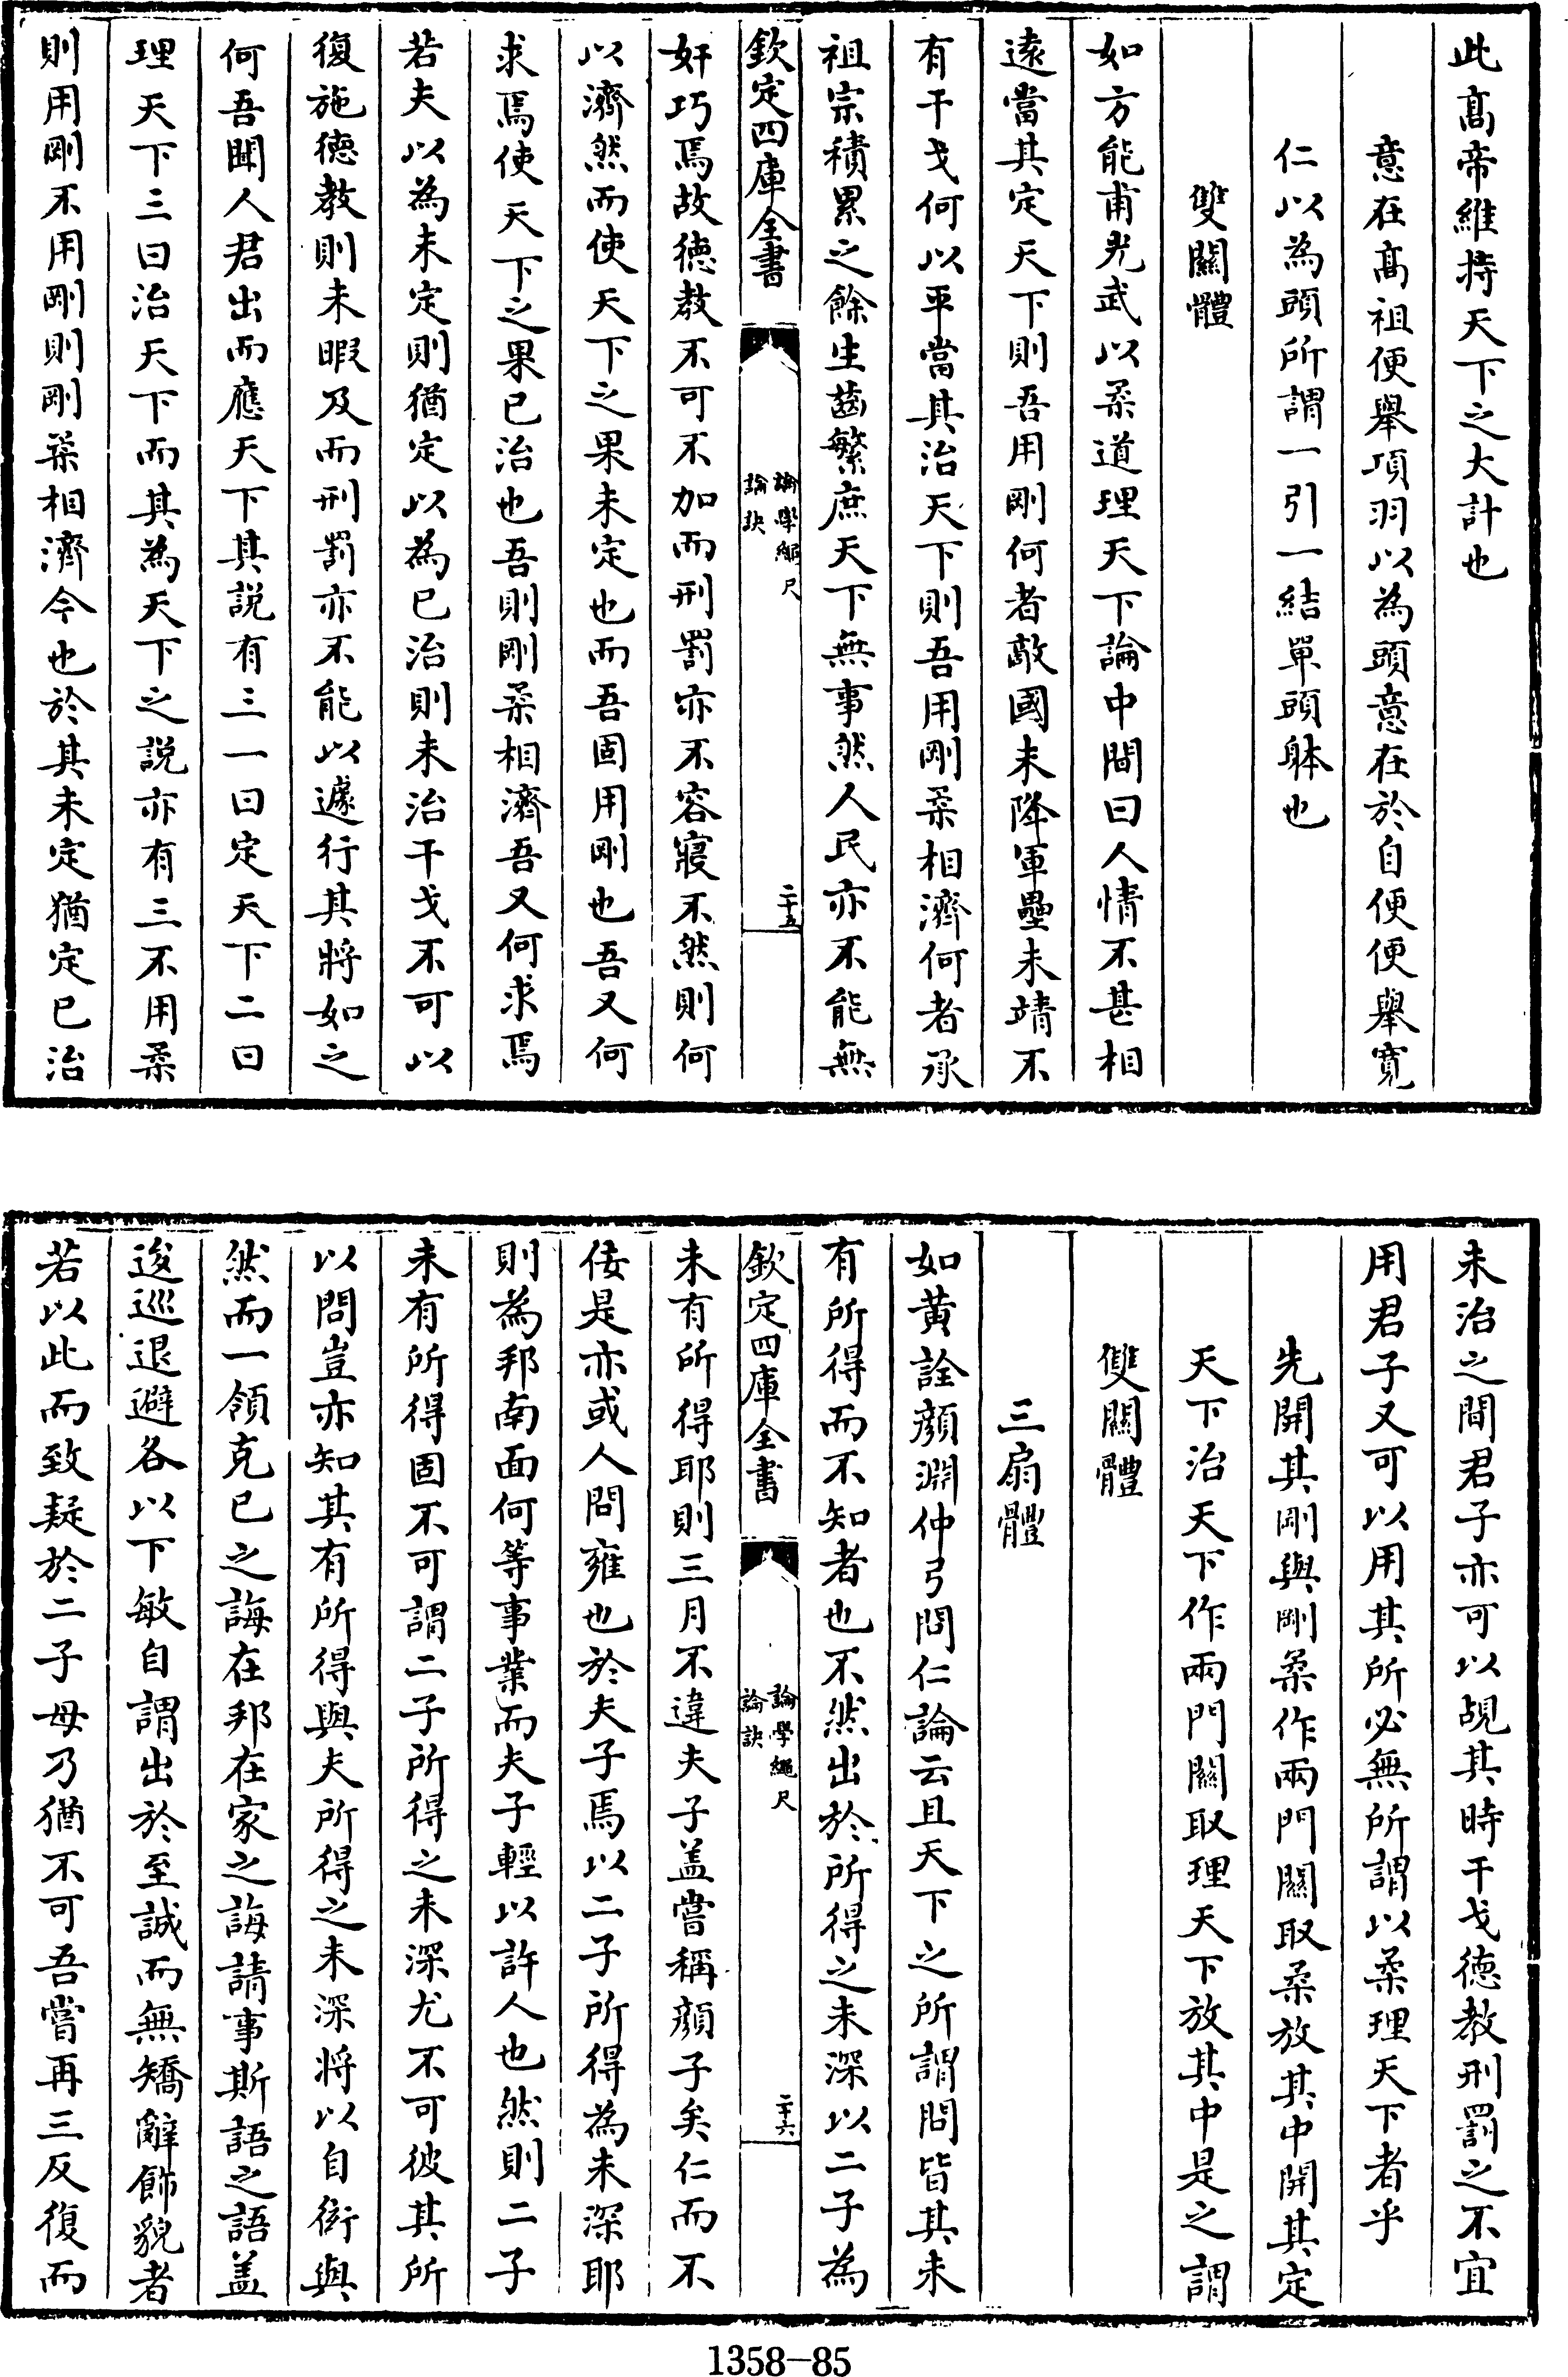 此髙帝維持天下之大計也
意在髙祖便舉項羽以為頭意在於自便便舉寛
仁以為頭所謂一引一結單頭體也
雙關體
如方能甫光武以柔道理天下論中間曰人情不甚相
逺當其定天下則吾用剛何者敵國未降軍壘未靖不
有干戈何以平當其治天下則吾用剛柔相濟何者承
祖宗積累之餘生齒繁庶天下無事然人民亦不能無
欽定四庫全書
論學繩尺
論訣
二十五
奸巧焉故徳教不可不加而刑罰亦不容寢不然則何
以濟然而使天下之果未定也而吾固用剛也吾又何
求焉使天下之果已治也吾則剛柔相濟吾又何求焉
若夫以為未定則猶定以為已治則未治干戈不可以
復施徳教則未暇及而刑罰亦不能以遽行其將如之
何吾聞人君出而應天下其説有三一曰定天下二曰
理天下三曰治天下而其為天下之説亦有三不用柔
則用剛不用剛則剛柔相濟今也於其未定猶定已治
未治之間君子亦可以覘其時干戈徳教刑罰之不宜
用君子又可以用其所必無所謂以柔理天下者乎
先開其剛與剛柔作兩門關取柔放其中開其定
天下治天下作兩門關取理天下放其中是之謂
雙關體
三扇體
如黄詮顔淵仲弓問仁論云且天下之所謂問皆其未
有所得而不知者也不然出於所得之未深以二子為
欽定四庫全書
論學繩尺
論訣
二十六
未有所得耶則三月不違夫子盖嘗稱顔子矣仁而不
佞是亦或人問雍也於夫子焉以二子所得為未深耶
則為邦南面何等事業而夫子輕以許人也然則二子
未有所得固不可謂二子所得之未深尤不可彼其所
以問豈亦知其有所得與夫所得之未深將以自衒與
然而一領克已之誨在邦在家之誨請事斯語之語盖
逡巡退避各以下敏自謂出於至誠而無矯辭飾貌者
若以此而致疑於二子毋乃猶不可吾嘗再三反復而
1358—85